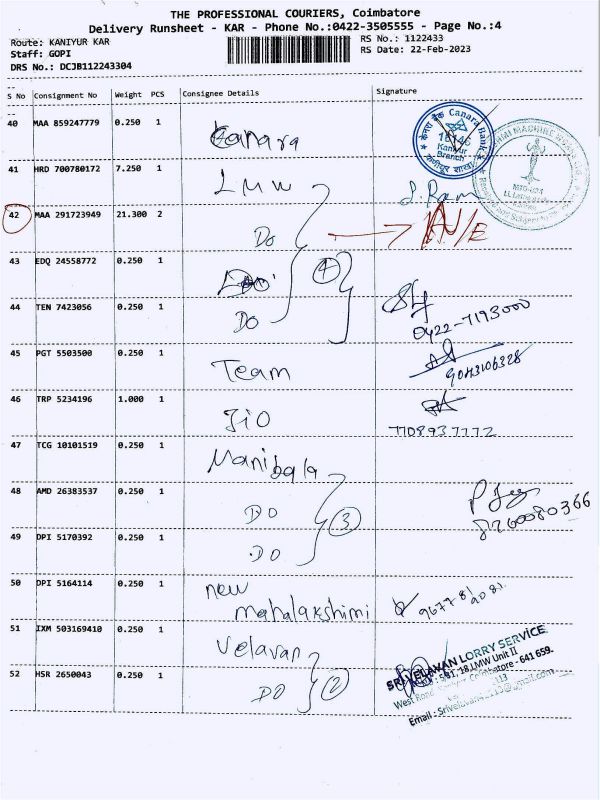 THE PROFESSIONAL COURIERS, Coimbatore
Delivery Runsheet - KAR - Phone No.:0422-3505555 - Page No.:4
Route: KANIYUR KAR
RS No.: 1122433
Staff: GOPI
RS Date: 22-Feb-2023
DRS No.: DCJB112243304
S No Consignment No Weight PCS Consignee Details Signature
40 MAA 859247779 0.250 1 Canara
केनरा बैंक Canara Bank
Kaniyur
Branch
41 HRD 700780172 7.250 1 LMW
42 MAA 291723949 21.300 2 Do N/E
43 EDQ 24558772 0.250 1 Do 4
44 TEN 7423056 0.250 1 Do
0422-7193000
45 PGT 5503500 0.250 1 Team
46 TRP 5234196 1.000 1 Jio
7708937772
47 TCG 10101519 0.250 1 Manibala
48 AMD 26383537 0.250 1 DO 3
8760080366
49 DPI 5170392 0.250 1 DO
50 DPI 5164114 0.250 1 new
mahalakshimi
51 IXM 503169410 0.250 1 Velavan
52 HSR 2650043 0.250 1 DO 2
SRI VELAVAN LORRY SERVICE
18, LMW Unit II
West Road Coimbatore - 641 659.
Email :